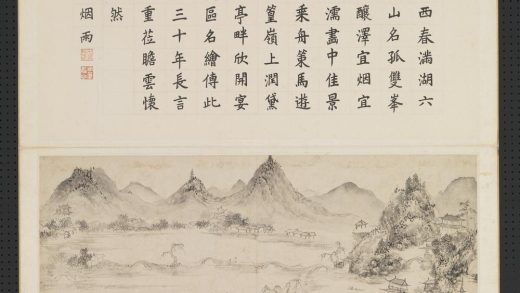 西春滿湖六
山名孤雙峯
釀澤宜烟宜
濡畫中佳景
乘舟策馬遊
篁嶺上潤黛
亭畔欣開宴
區名繪傳此
三十年長言
重莅瞻雲懷
然
烟雨